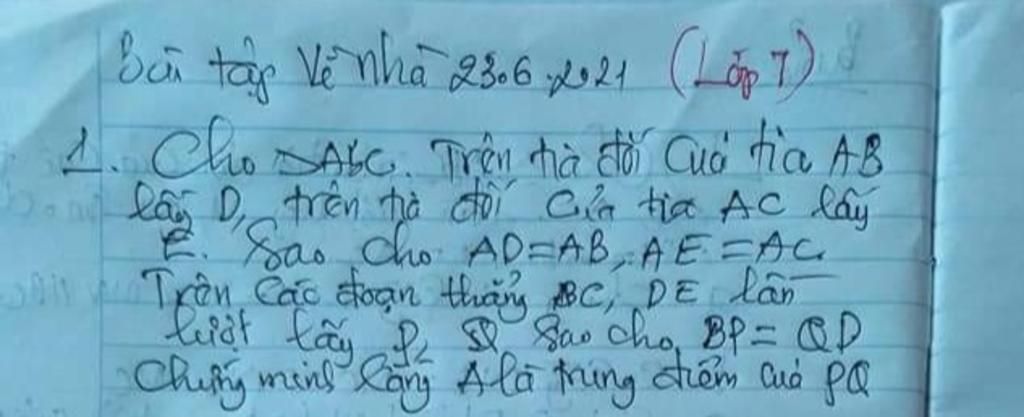 Bài tập Về nhà 23.6.2021 (Lớp 7)
1. Cho △ABC. Trên tia đối Của tia AB
lấy D, trên tia đối Của tia AC lấy
E. Sao cho AD=AB, AE=AC
Trên Các đoạn thẳng BC, DE lần
lượt lấy P, Q Sao cho BP=QD
Chứng minh rằng A là trung điểm của PQ